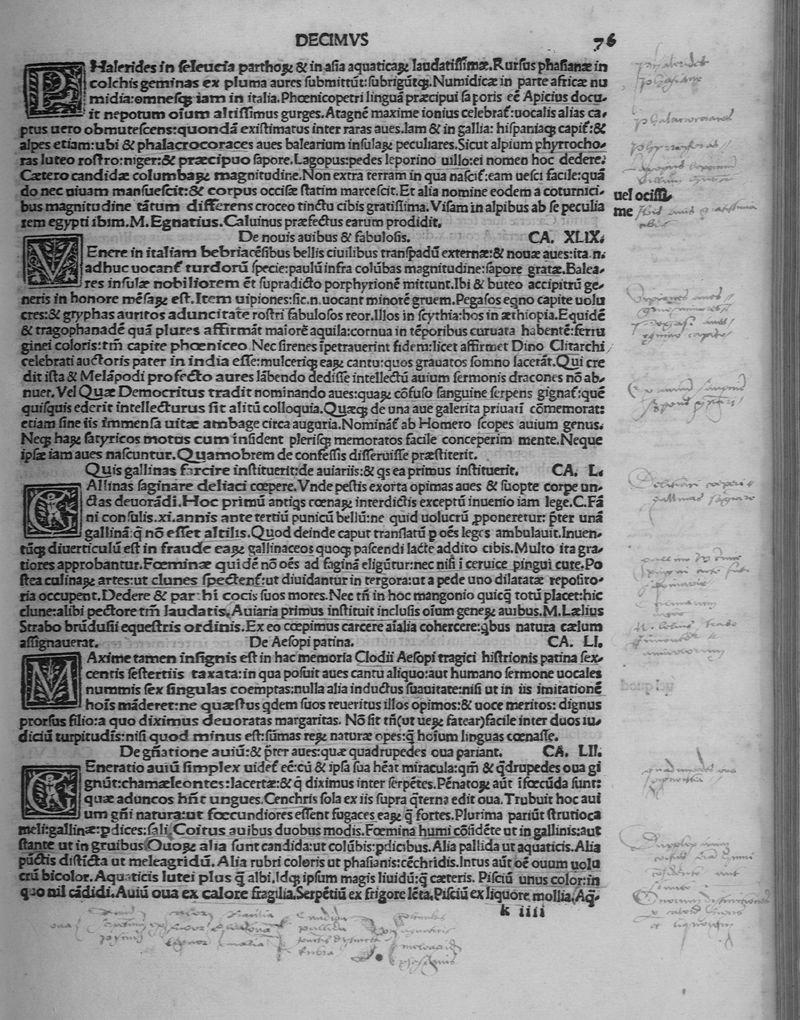 DECIMVS 76
PHalerides in seleucia parthoꝝ & in asia aquaticaꝝ laudatissimæ. Rursus phasianæ in
colchis geminas ex pluma aures submittūt: subrigūtq;. Numidicæ in parte africæ nu
midia: omnesq; iam in italia. Phœnicopetri linguā præcipui saporis eē Apicius docu-
it nepotum oīum altissimus gurges. Atagnē maxime ionius celebraſ: uocalis alias ca-
ptus uero obmutescens: quondā existimatus inter raras aues. Iam & in gallia: hispaniaq; capiſ: &
alpes etiam: ubi & phalacrocoraces aues balearium insulaꝝ peculiares. Sicut alpium phyrrocho-
ras luteo rostro: niger: & præcipuo sapore. Lagopus: pedes leporino uillo: ei nomen hoc dedere.
Cætero candidæ columbaꝝ magnitudine. Non extra terram in qua nasciſ: eam uesci facile: quā
do nec uiuam mansuescit: & corpus occisæ statim marcescit. Et alia nomine eodem a coturnici-
bus magnitudine tātum differens croceo tinctu cibis gratissima. Visam in alpibus ab se peculia
rem egypti ibim. M. Egnatius. Caluinus præfectus earum prodidit.
uel ocissi-
me
De nouis auibus & fabulosis. CA. XLIX.
VEnere in italiam bebriacēsibus bellis ciuilibus transpadū externæ: & nouæ aues: ita n.
adhuc uocanſ turdorū specie: paulū infra colūbas magnitudine: sapore gratæ. Balea-
res insulæ nobiliorem ēt supradicto porphyrionē mittunt. Ibi & buteo accipitrū ge-
neris in honore mēsaꝝ est. Item uipiones: sic. n. uocant minorē gruem. Pegasos eqno capite uolu
cres: & gryphas auritos aduncitate rostri fabulosos reor. Illos in scythia: hos in æthiopia. Equidē
& tragophanadē quā plures affirmāt maiorē aquila: cornua in tēporibus curuata habentē: ferru
ginei coloris: tm̄ capite phœniceo. Nec sirenes īpetrauerint fidem: licet affirmet Dino Clitarchi
celebrati auctoris pater in india esse: mulceriq; eaꝝ cantu: quos grauatos somno lacerāt. Qui cre
dit ista & Melāpodi profecto aures lābendo dedisse intellectū auium sermonis dracones nō ab-
nuer. Vel Quæ Democritus tradit nominando aues: quaꝝ cōfuso sanguine serpens gignaſ: quē
quisquis ederit intellecturus sit alitū colloquia. Quæq; de una aue galerita priuati cōmemorat:
etiam sine iis immensa uitæ ambage circa auguria. Nominaſ ab Homero scopes auium genus.
Neq; haꝝ satyricos motus cum insident plerisq; memoratos facile conceperim mente. Neque
ipsæ iam aues nascuntur. Quamobrem de confessis disseruisse præstiterit.
Quis gallinas farcire instituerit: de auiariis: & qs ea primus instituerit. CA. L.
GAllinas saginare deliaci cœpere. Vnde pestis exorta opimas aues & suopte corpe un-
ctas deuorādi. Hoc primū antiqs cœnaꝝ interdictis exceptū inuenio iam lege. C. Fā
ni consulis. xi. annis ante tertiū punicū bellū: ne quid uolucrū ꝓponeretur: p̄ter unā
gallinā: q̄ nō esset altilis. Quod deinde caput translatū p oēs leges ambulauit. Inuen-
tūq; diuerticulū est in fraude eaꝝ gallinaceos quoq; pascendi lacte addito cibis. Multo ita gra-
tiores approbantur. Fœminæ quidē nō oēs ad saginā eligūtur: nec nisi ī ceruice pingui cute. Po
stea culinaꝝ artes: ut clunes spectenſ: ut diuidantur in tergora: ut a pede uno dilatatæ reposito-
ria occupent. Dedere & parthi cocis suos mores. Nec tn̄ in hoc mangonio quicq̄ totū placet: hic
clune: alibi pectore tm̄ laudatis. Auiaria primus instituit inclusis oīum geneꝝ auibus. M. Lælius
Strabo brūdusii equestris ordinis. Ex eo cœpimus carcere aīalia cohercere: qbus natura cælum
assignauerat. De Aesopi patina. CA. LI.
MAxime tamen insignis est in hac memoria Clodii Aesopi tragici histrionis patina sex-
centis sestertiis taxata: in qua posuit aues cantu aliquo: aut humano sermone uocales
nummis sex singulas coemptas: nulla alia inductus suauitate: nisi ut in iis imitationē
hoīs māderet: ne quæstus qdem suos reueritus illos opimos: & uoce meritos: dignus
prorsus filio: a quo diximus deuoratas margaritas. Nō sit tn̄ (ut ueꝝ fatear) facile inter duos iu-
diciū turpitudīs: nisi quod minus est: sūmas reꝝ naturæ opes: q̄ hoīum linguas cœnasse.
De gn̄atione auiū: & p̄ter aues: quæ quadrupedes oua pariant. CA. LII.
GEneratio auiū simplex uideſ eē: cū & ipsa sua hēat miracula: qm̄ & q̄drupedes oua gi
gnūt: chamæleontes: lacertæ: & q̄ diximus inter serpētes. Pēnatoꝝ aūt īfœcūda sunt:
quæ aduncos hn̄t ungues. Cenchris sola ex iis supra q̄terna edit oua. Tribuit hoc aui
um gn̄i natura: ut fœcundiores essent fugaces eaꝝ q̄ fortes. Plurima pariūt strutioca
meli: gallinæ: pdices: sali. Coitus auibus duobus modis. Fœmina humi cōsidēte ut in gallinis: aut
stante ut in gruibus. Ouoꝝ alia sunt candida: ut colūbis: pdicibus. Alia pallida ut aquaticis. Alia
pūctis distīcta ut meleagridū. Alia rubri coloris ut phasianis: cēchridis. Intus aūt oē ouum uolu
crū bicolor. Aquaticis lutei plus q̄ albi. Idq; ipsum magis liuidū: q̄ cæteris. Pisciū unus color: in
quo nil cādidi. Auiū oua ex calore fragilia. Serpētiū ex frigore lēta. Pisciū ex liquore mollia. Aq̄-
k iiii